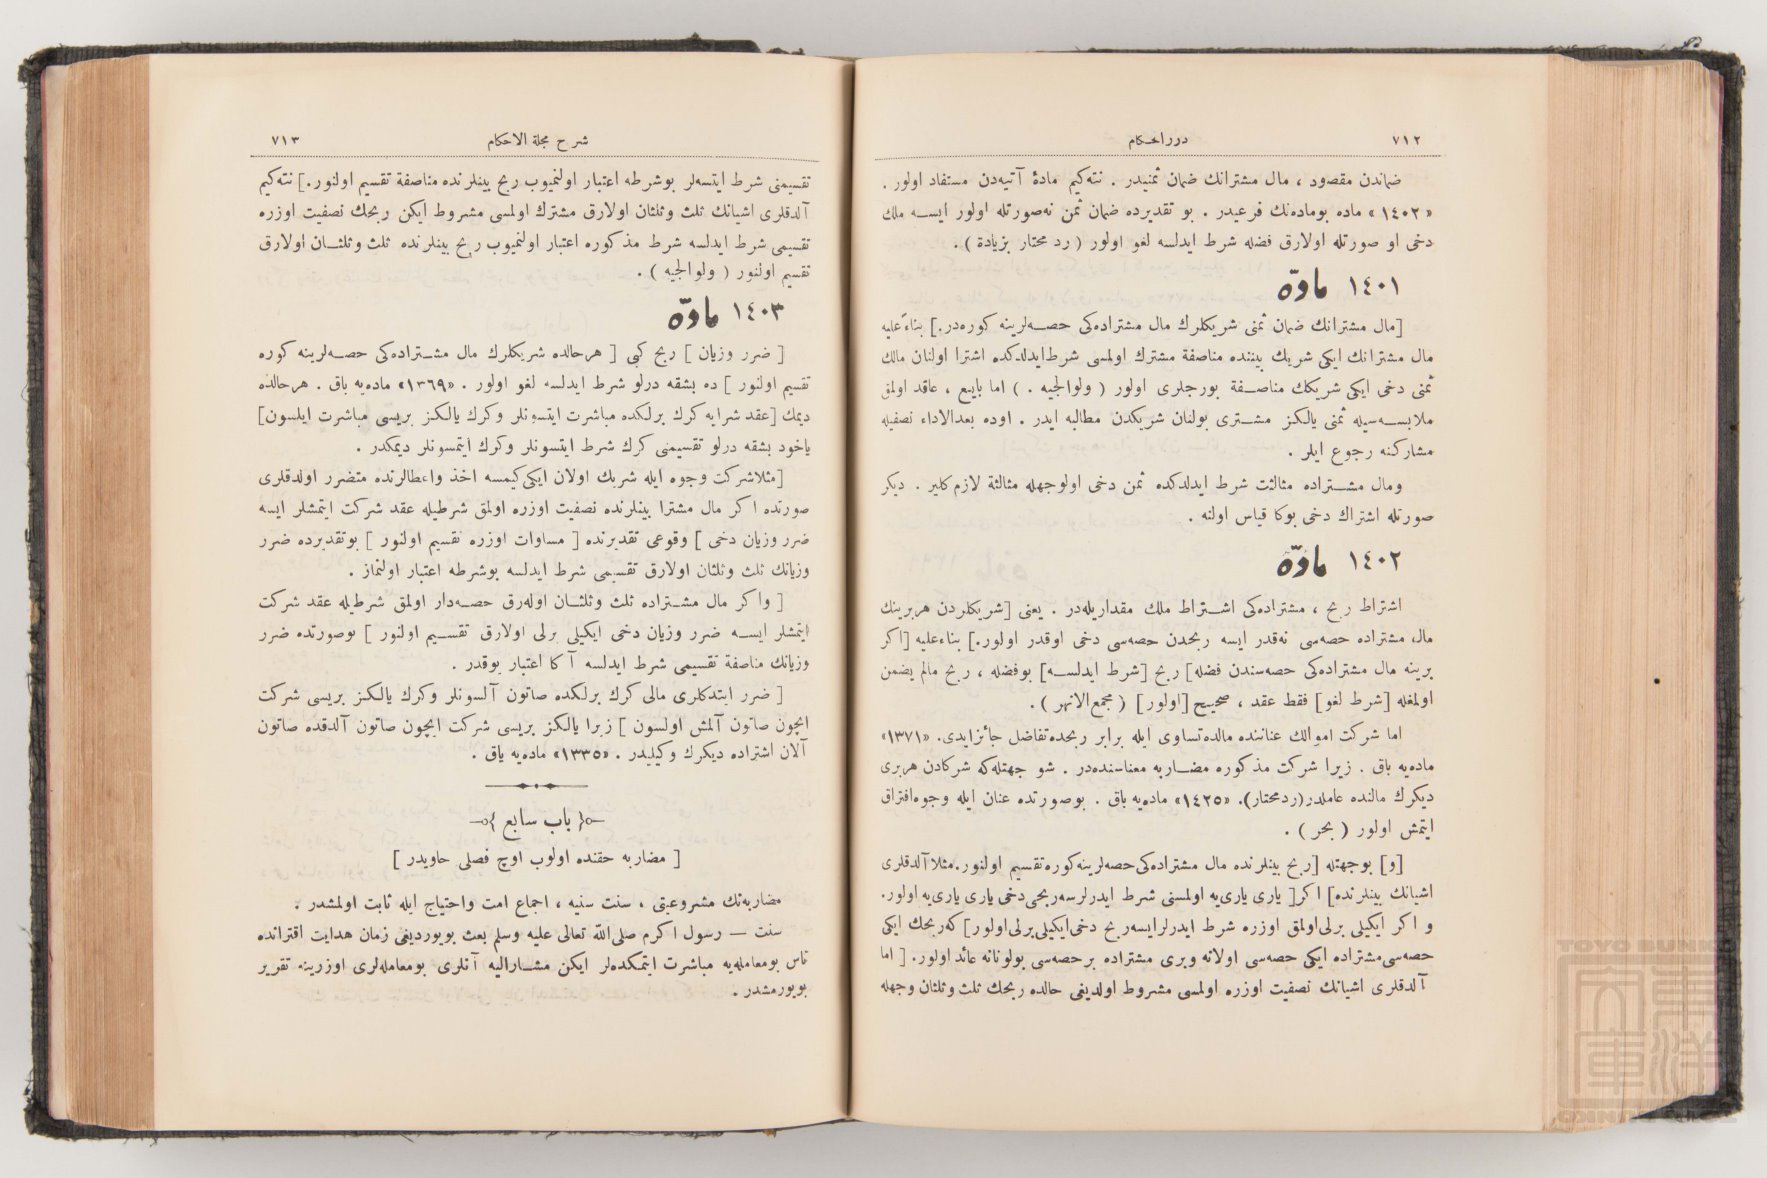 ٧١٢
دررالحكام
ضماندن مقصود ، مال مشترانك ضمان ثمنيدر . نته‌كيم مادۀ آتيه‌دن مستفاد اولور .
«١٤٠٢» ماده بوماده‌نك فرعيدر . بو تقديرده ضمان ثمن نه‌صورتله اولور ايسه ملك
دخى او صورتله اولارق فضله شرط ايدلسه لغو اولور ( رد محتار بزيادة ) .
١٤٠١ مادّه
[مال مشترانك ضمان ثمنى شريكلرك مال مشتراده‌كى حصه‌لرينه كوره‌در.] بناءً عليه
مال مشترانك ايكى شريك بيننده مناصفة مشترك اولمسى شرط ايدلدكده اشترا اولنان مالك
ثمنى دخى ايكى شريكك مناصفة بورجلرى اولور ( ولوالجيه . ) اما بايع ، عاقد اولمق
ملابسه‌سيله ثمنى يالكز مشترى بولنان شريكدن مطالبه ايدر . اوده بعدالاداء نصفيله
مشاركنه رجوع ايلر .
ومال مشتراده مثالثت شرط ايدلدكده ثمن دخى اولوجهله مثالثة لازم كلير . ديكر
صورتله اشتراك دخى بوكا قياس اولنه .
١٤٠٢ مادّه
اشتراط ربح ، مشتراده‌كى اشتراط ملك مقداريله‌در . يعنى [شريكلردن هربرينك
مال مشتراده حصه‌سى نه‌قدر ايسه ربحدن حصه‌سى دخى اوقدر اولور.] بناءعليه [اكر
برينه مال مشتراده‌كى حصه‌سندن فضله] ربح [شرط ايدلسه] بوفضله ، ربح مالم يضمن
اولمغله [شرط لغو] فقط عقد ، صحيح [اولور] ( مجمع‌الانهر ) .
اما شركت اموالك عناننده مالده‌تساوى ايله برابر ربحده‌تفاضل جائزايدى. «١٣٧١»
ماده‌يه باق . زيرا شركت مذكوره مضاربه معناسنده‌در . شو جهتله‌كه شركادن هربرى
ديكرك مالنده عاملدر(ردمحتار). «١٤٢٥» ماده‌يه باق . بوصورتده عنان ايله وجوه افتراق
ايتمش اولور ( بحر ) .
[و] بوجهتله [ربح بينلرنده مال مشتراده‌كى حصه‌لرينه كوره تقسيم اولنور.مثلا آلدقلرى
اشيانك بينلرنده] اكر[ يارى يارى‌يه اولمسنى شرط ايدرلرسه ربحى دخى يارى يارى‌يه اولور.
و اكر ايكيلى برلى اولمق اوزره شرط ايدرلرايسه ربح دخى ايكيلى برلى اولور] كه ربحك ايكى
حصه‌سى مشتراده ايكى حصه‌سى اولانه وبرى مشتراده برحصه‌سى بولونانه عائد اولور. [ اما
آلدقلرى اشيانك نصفيت اوزره اولمسى مشروط اولديغى حالده ربحك ثلث وثلثان وجهله
شرح مجلة الاحكام
٧١٣
تقسيمنى شرط ايتسه‌لر بوشرطه اعتبار اولنميوب ربح بينلرنده مناصفة تقسيم اولنور.] نته‌كيم
آلدقلرى اشيانك ثلث وثلثان اولارق مشترك اولمسى مشروط ايكن ربحك نصفيت اوزره
تقسيمى شرط ايدلسه شرط مذكوره اعتبار اولنميوب ربح بينلرنده ثلث وثلثان اولارق
تقسيم اولنور ( ولوالجيه ) .
١٤٠٣ مادّه
[ ضرر وزيان ] ربح كبى [ هرحالده شريكلرك مال مشتراده‌كى حصه‌لرينه كوره
تقسيم اولنور ] ده بشقه درلو شرط ايدلسه لغو اولور . «١٣٦٩» ماده‌يه باق . هرحالده
ديمك [عقد شرايه كرك برلكده مباشرت ايتسونلر وكرك يالكز بريسى مباشرت ايلسون]
ياخود بشقه درلو تقسيمنى كرك شرط ايتسونلر وكرك ايتمسونلر ديمكدر .
[مثلا شركت وجوه ايله شريك اولان ايكى كيمسه اخذ واعطالرنده متضرر اولدقلرى
صورتده اكر مال مشترا بينلرنده نصفيت اوزره اولمق شرطيله عقد شركت ايتمشلر ايسه
ضرر وزيان دخى ] وقوعى تقديرنده [ مساوات اوزره تقسيم اولنور ] بوتقديرده ضرر
وزيانك ثلث وثلثان اولارق تقسيمى شرط ايدلسه بوشرطه اعتبار اولنماز .
[ واكر مال مشتراده ثلث وثلثان اوله‌رق حصه‌دار اولمق شرطيله عقد شركت
ايتمشلر ايسه ضرر وزيان دخى ايكيلى برلى اولارق تقسيم اولنور ] بوصورتده ضرر
وزيانك مناصفة تقسيمى شرط ايدلسه آكا اعتبار يوقدر .
[ ضرر ايتدكلرى مالى كرك برلكده صاتون آلسونلر وكرك يالكز بريسى شركت
ايچون صاتون آلمش اولسون ] زيرا يالكز بريسى شركت ايچون صاتون آلدقده صاتون
آلان اشتراده ديكرك وكيليدر . «١٣٣٥» ماده‌يه باق .
باب سابع
[ مضاربه حقنده اولوب اوچ فصلى حاويدر ]
مضاربه‌نك مشروعيتى ، سنت سنيه ، اجماع امت واحتياج ايله ثابت اولمشدر .
سنت — رسول اكرم صلى‌الله تعالى عليه وسلم بعث بويورديغى زمان هدايت اقترانده
ناس بومعامله‌يه مباشرت ايتمكده‌لر ايكن مشاراليه آنلرى بومعامله‌لرى اوزرينه تقرير
بويورمشدر .
TOYO BUNKO
東洋文庫